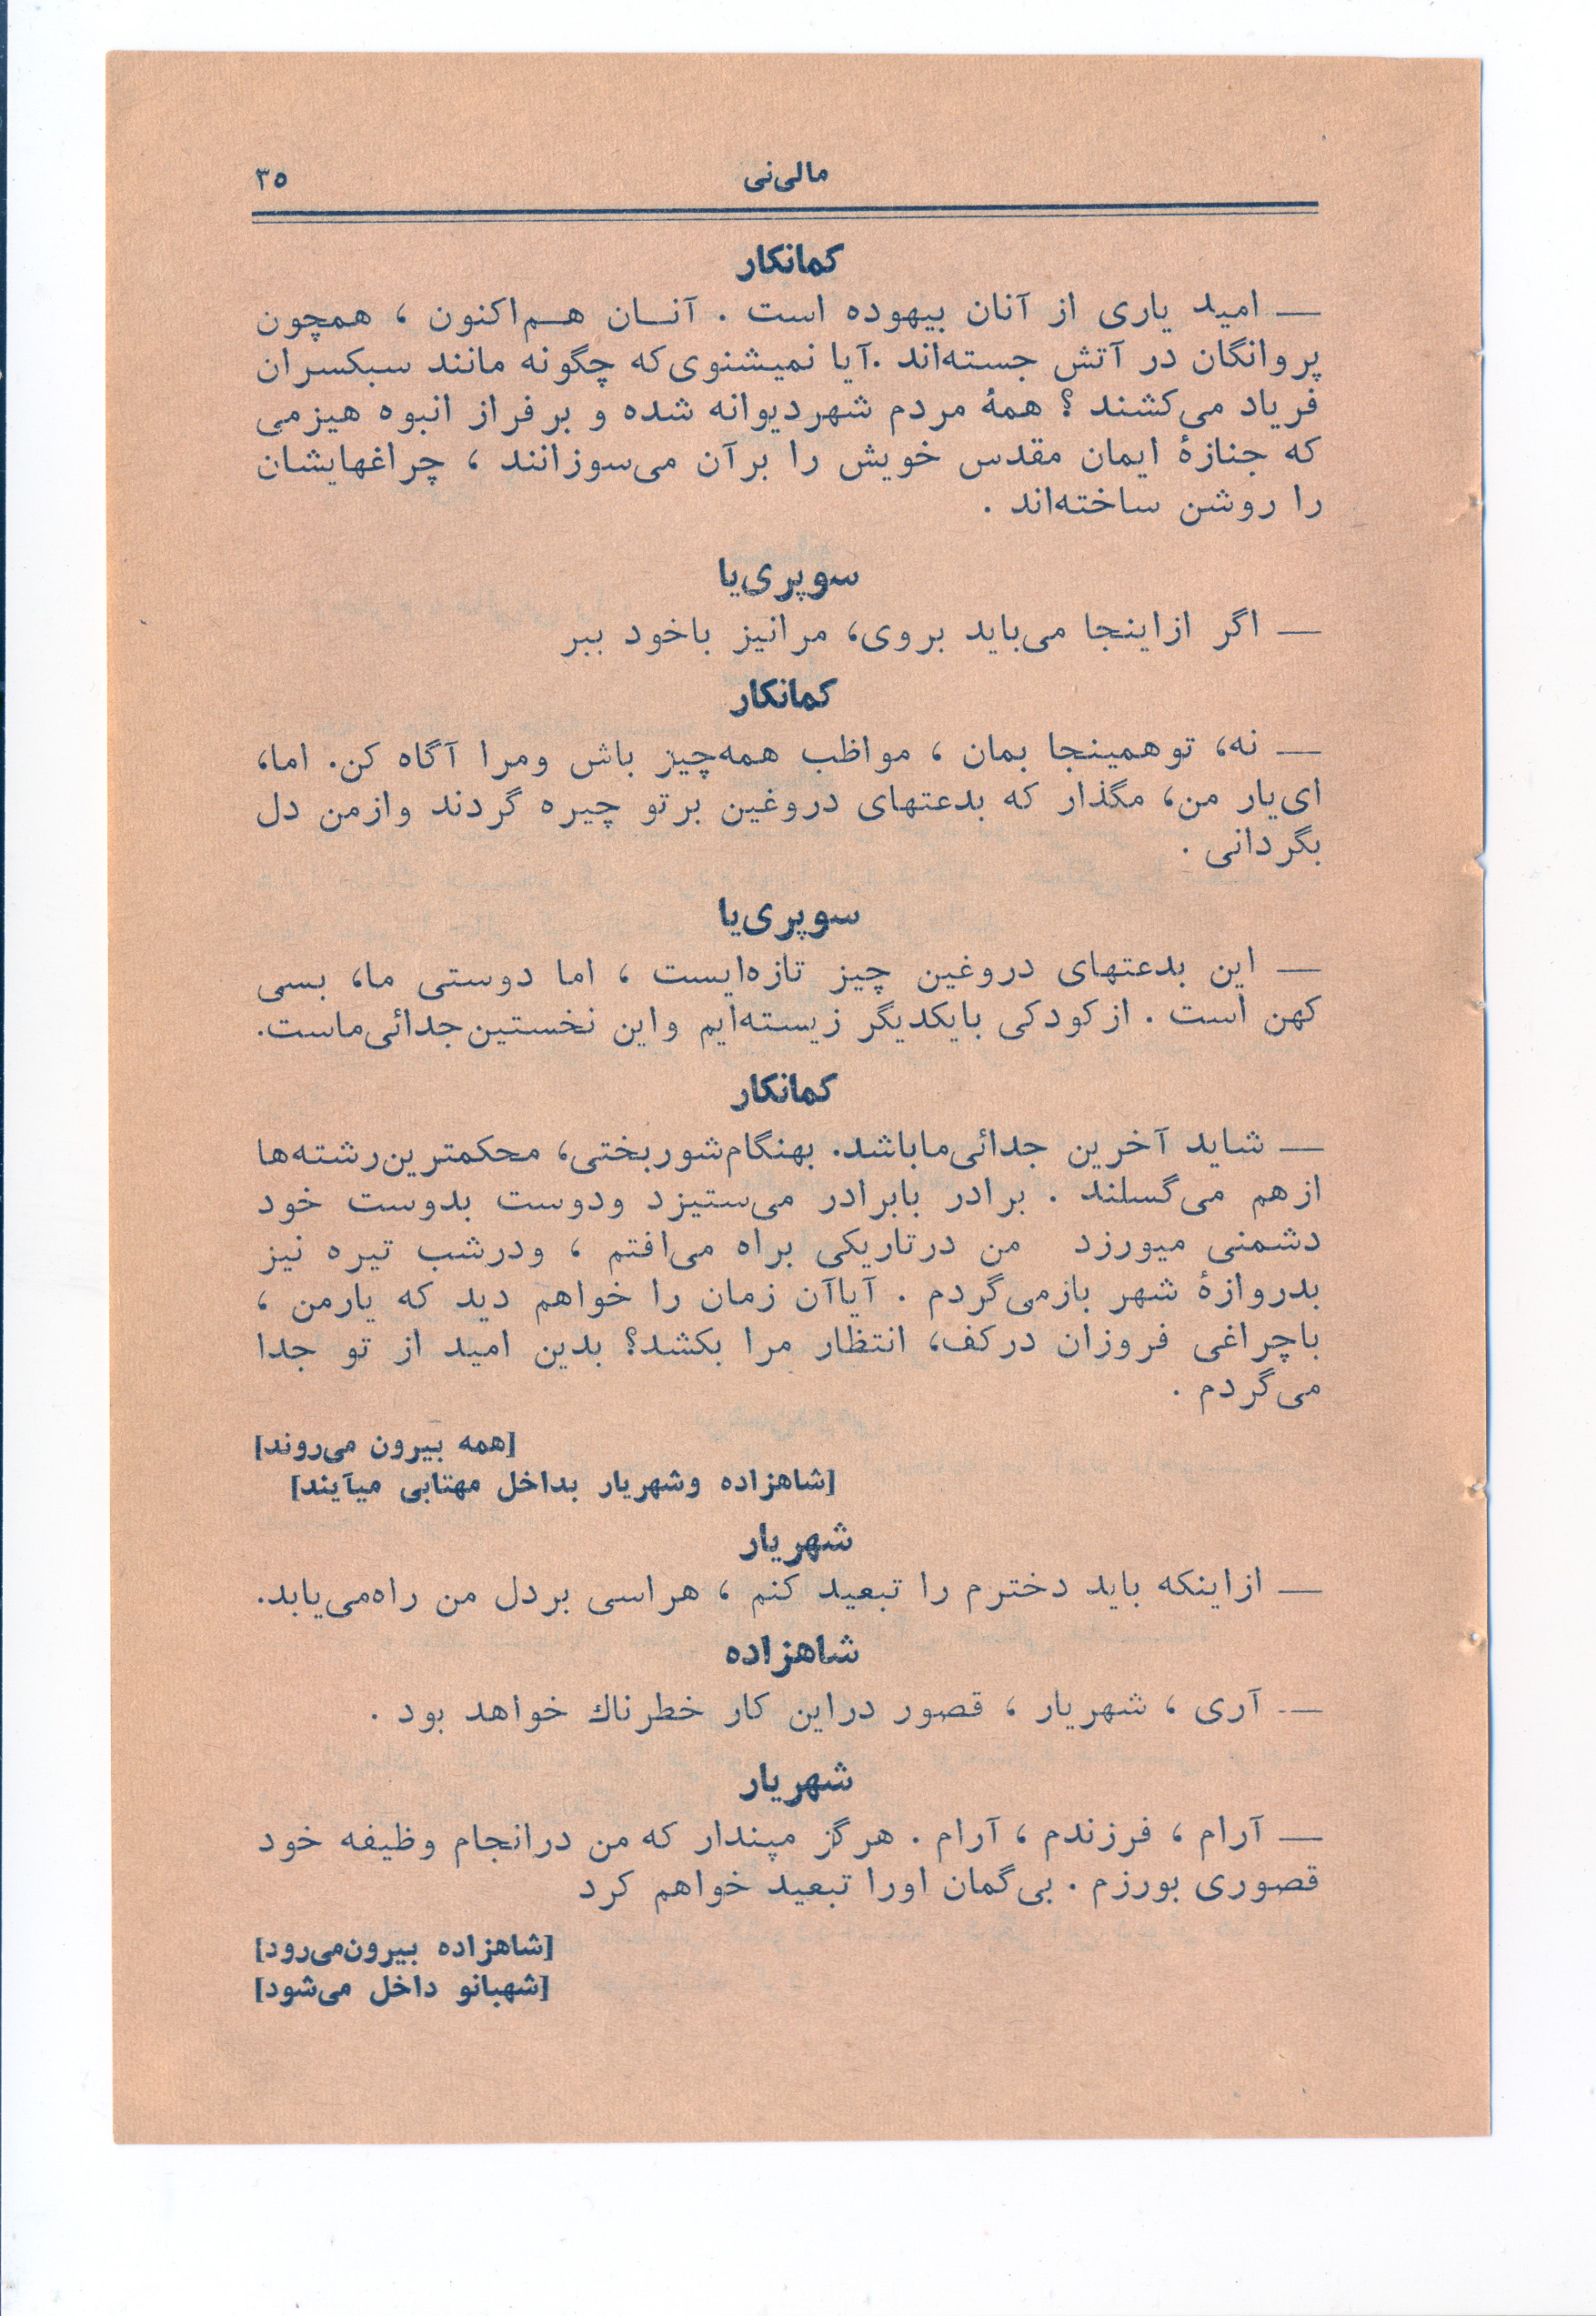 مالی‌نی
۳۵
کمانکار
— امید یاری از آنان بیهوده است . آنــان هــم‌اکنون ، همچون
پروانگان در آتش جسته‌اند .آیا نمیشنوی‌که چگونه مانند سبکسران
فریاد می‌کشند ؟ همهٔ مردم شهر دیوانه شده و بر فراز انبوه هیزمی
که جنازهٔ ایمان مقدس خویش را برآن می‌سوزانند ، چراغهایشان
را روشن ساخته‌اند .
سوپری‌یا
— اگر ازاینجا می‌باید بروی، مرانیز باخود ببر
کمانکار
— نه، توهمینجا بمان ، مواظب همه‌چیز باش ومرا آگاه کن. اما،
ای‌یار من، مگذار که بدعتهای دروغین برتو چیره گردند وازمن دل
بگردانی .
سوپری‌یا
— این بدعتهای دروغین چیز تازه‌ایست ، اما دوستی ما، بسی
کهن است . ازکودکی بایکدیگر زیسته‌ایم واین نخستین‌جدائی‌ماست.
کمانکار
— شاید آخرین جدائی‌ماباشد. بهنگام‌شوربختی، محکمترین‌رشته‌ها
ازهم می‌گسلند . برادر بابرادر می‌ستیزد ودوست بدوست خود
دشمنی میورزد من درتاریکی براه می‌افتم ، ودرشب تیره نیز
بدروازهٔ شهر بازمی‌گردم . آیاآن زمان را خواهم دید که یارمن ،
باچراغی فروزان درکف، انتظار مرا بکشد؟ بدین امید از تو جدا
می‌گردم .
[همه بیرون می‌روند]
[شاهزاده وشهریار بداخل مهتابی میآیند]
شهریار
— ازاینکه باید دخترم را تبعید کنم ، هراسی بردل من راه‌می‌یابد.
شاهزاده
— آری ، شهریار ، قصور دراین کار خطرناك خواهد بود .
شهریار
— آرام ، فرزندم ، آرام . هرگز مپندار که من درانجام وظیفه خود
قصوری بورزم . بی‌گمان اورا تبعید خواهم کرد
[شاهزاده بیرون‌می‌رود]
[شهبانو داخل می‌شود]